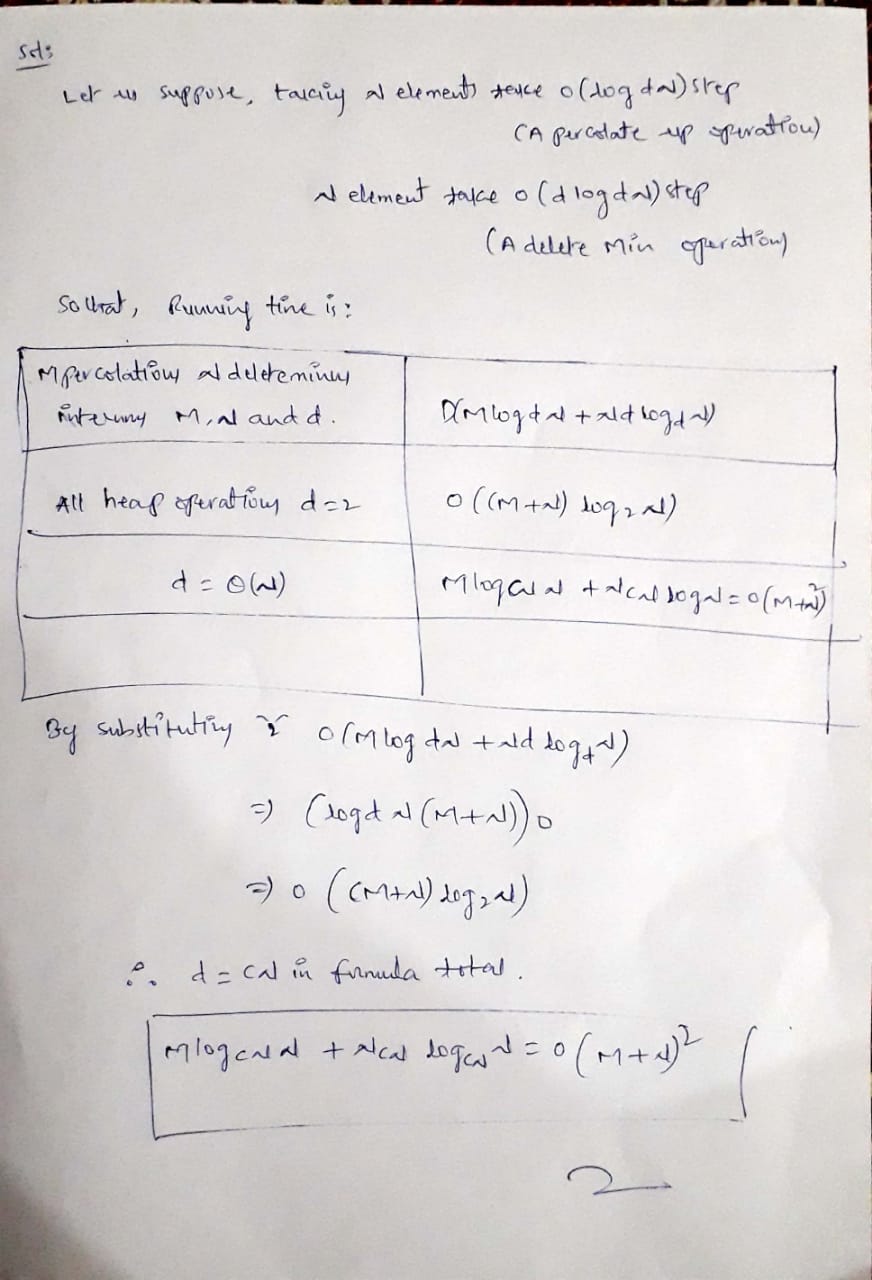 Sol:
Let us suppose, taking N elements take O(log dN) step
(A percolate up operation)
N element take O(d log dN) step
(A delete Min operation)
So that, Running time is:
M percolations N deletemins
interms M, N and d.
O(M log d N + Nd log d N)
All heap operations d=2
O((M+N) log 2 N)
d = Θ(N)
M log CN N + NCN log N = O(M+N²)
By substituting 2 O(M log dN + Nd log d N)
⇒ (log d N (M+N)) O
⇒ O((M+N) log 2 N)
∴ d = CN in formula total.
M log CN N + NCN log CN N = O(M+N)²
2